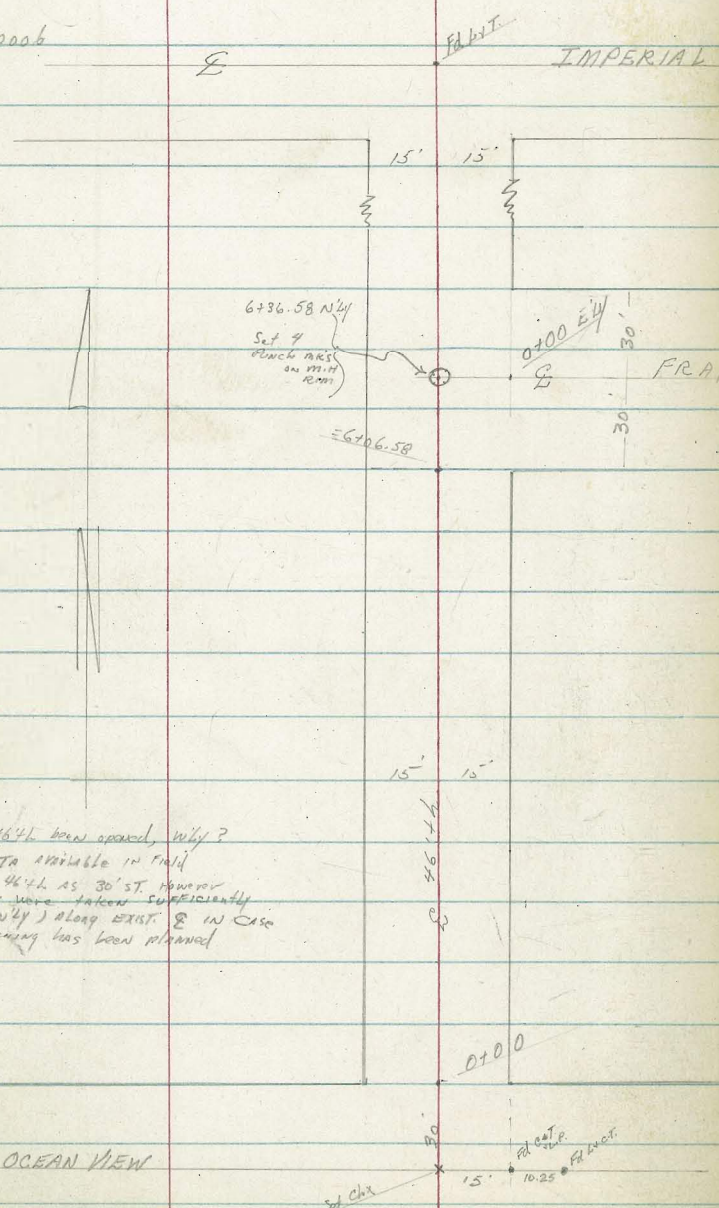 0006
℄
Fd L&T.
IMPERIAL
15' 15'
6+36.58 N'LY
Set 4
PUNCH MK'S
ON M.H
RIM
0+00 E'LY
30'
℄
FRA
30'
=6+06.58
15' 15'
℄ 46'th
46th been opened, W'ly?
TA AVAILABLE IN Field
46'th AS 30' ST. However
were taken SUFFICIENTLY
N'LY) ALONG EXIST. ℄ IN CASE
ning has been planned
0+00
30'
OCEAN VIEW
Fd. L&T.
Fd L&T.
15' 10.25
Set Chx